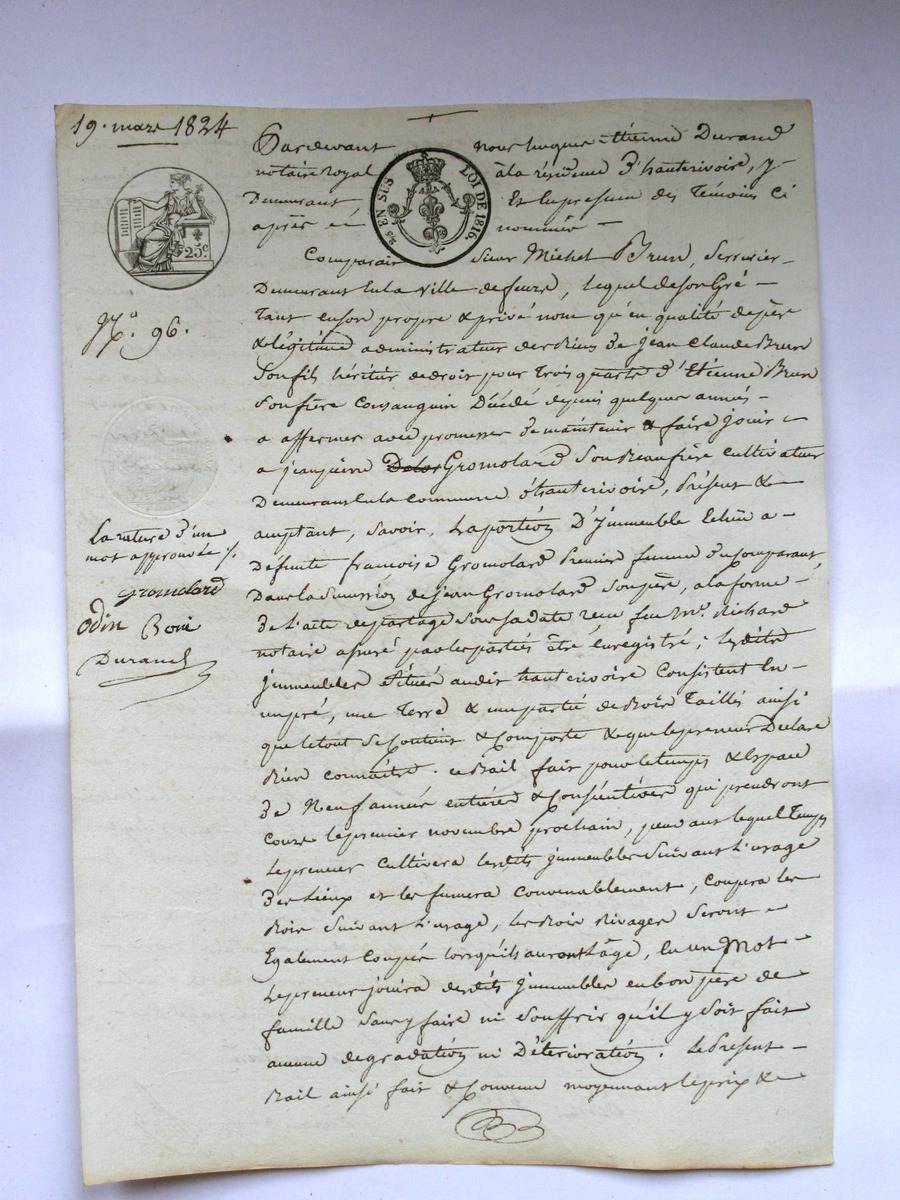 19. mars 1824
Pardevant nous hugues-étienne Durand
notaire royal à la résidence d'hauterivoire, y
Demeurant Et en presence des Témoins ci
après et nommés
25 EN SUS LOI DE 1816.
25c
Comparait Sieur Michel Brun, Serrurier
Demeurant en la ville de feurs, lequel de son Gré
Tant en son propre & privé nom qu'en qualité de père
& légitime administrateur des Biens de jean Claude Brun
Son fils héritier de droit pour Trois quarts d'Etienne Brun
Son frère Consanguin Décédé depuis quelques années
a affermé avec promesse de maintenir & faire jouir
N.o 96.
a jean pierre Gromolard Son Beaufrère cultivateur
Demeurant en la commune d'hauterivoire, Présent &
acceptant, Savoir, la portion D'jmmeuble échue a
La rature d'un
mot approuvée ./.
Gromolard
odin Boni
Durand
Défunte francoise Gromolard Premiere femme du Comparant
Dans la Succession de jean Gromolard Son père, a la forme
de l'acte de partage Sous Sa date recu feu Me. Richard
notaire assuré par les parties être enregistré; lesdits
jmmeubles Situés audit hauterivoire Consistent En
un pré, une Terre & une partie de Bois Taillis ainsi
que le tout Se Contient & Comporte & que le preneur Declare
Bien connaitre. ce Bail fait pour le temps & Espace
de Neuf années entières & Consécutives qui prendront
Cours le premier novembre prochain, pendant lequel Temps
Le preneur cultivera lesdits jmmeubles Suivant L'usage
Des Lieux et les fumera convenablement, coupera les
Bois Suivant L'usage, les Bois Rivages Seront
Egalement Coupés lorsqu'ils auront L'âge, En un Mot
Le preneur jouira desdits jmmeubles en bon père de
famille Sans y faire ni Souffrir qu'il y Soit fait
aucune degradation ni Déterioration. Le Present
Bail ainsi fait & Convenu moyennant le prix &